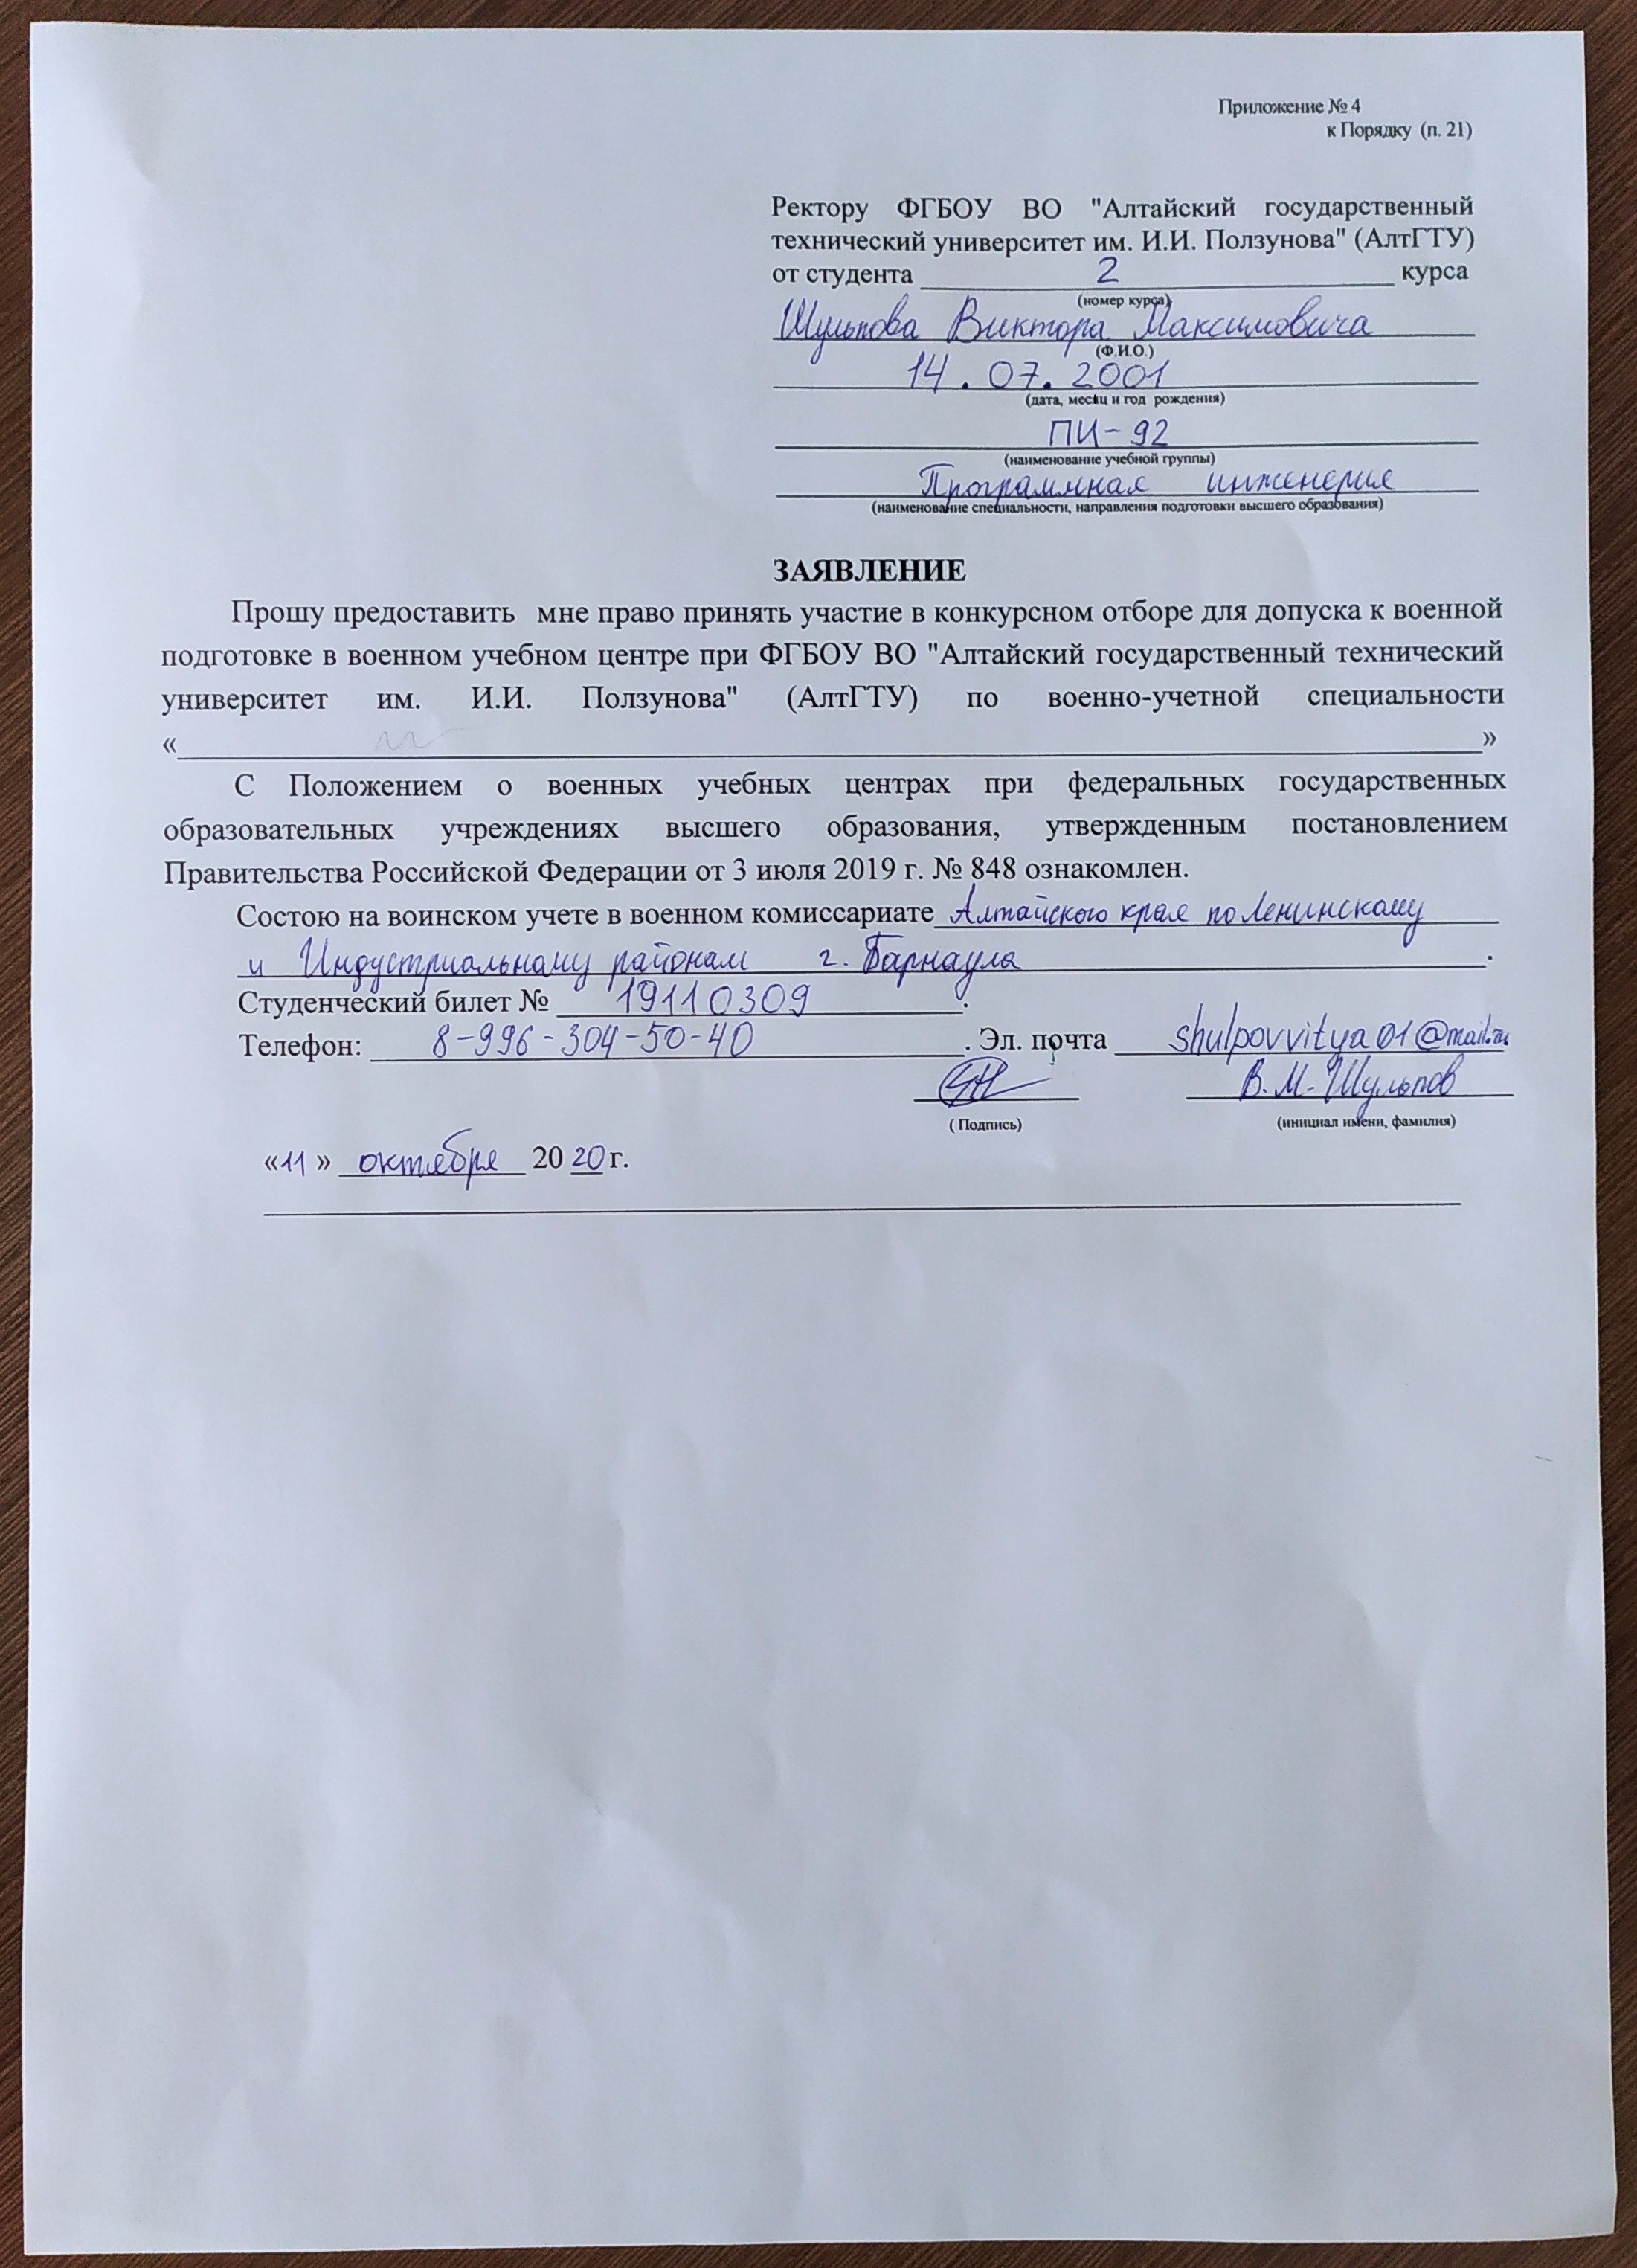 Приложение № 4
к Порядку (п. 21)
Ректору ФГБОУ ВО "Алтайский государственный
технический университет им. И.И. Ползунова" (АлтГТУ)
от студента 2 курса
(номер курса)
Шульпова Виктора Максимовича
(Ф.И.О.)
14.07.2001
(дата, месяц и год рождения)
ПИ-92
(наименование учебной группы)
Программная инженерия
(наименование специальности, направления подготовки высшего образования)
ЗАЯВЛЕНИЕ
Прошу предоставить мне право принять участие в конкурсном отборе для допуска к военной
подготовке в военном учебном центре при ФГБОУ ВО "Алтайский государственный технический
университет им. И.И. Ползунова" (АлтГТУ) по военно-учетной специальности
«»
С Положением о военных учебных центрах при федеральных государственных
образовательных учреждениях высшего образования, утвержденным постановлением
Правительства Российской Федерации от 3 июля 2019 г. № 848 ознакомлен.
Состою на воинском учете в военном комиссариате Алтайского края по Ленинскому
и Индустриальному районам г. Барнаула.
Студенческий билет № 19110309.
Телефон: 8-996-304-50-40. Эл. почта shulpovvitya01@mail.ru
В.М. Шульпов
(Подпись) (инициал имени, фамилия)
«11» октября 2020 г.